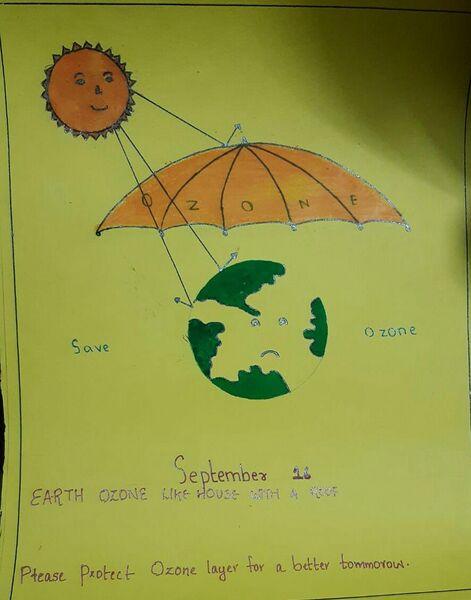 OZONE
Save Ozone
September 16
EARTH OZONE LIKE HOUSE WITH A ROOF
Please Protect Ozone layer for a better tommorow.